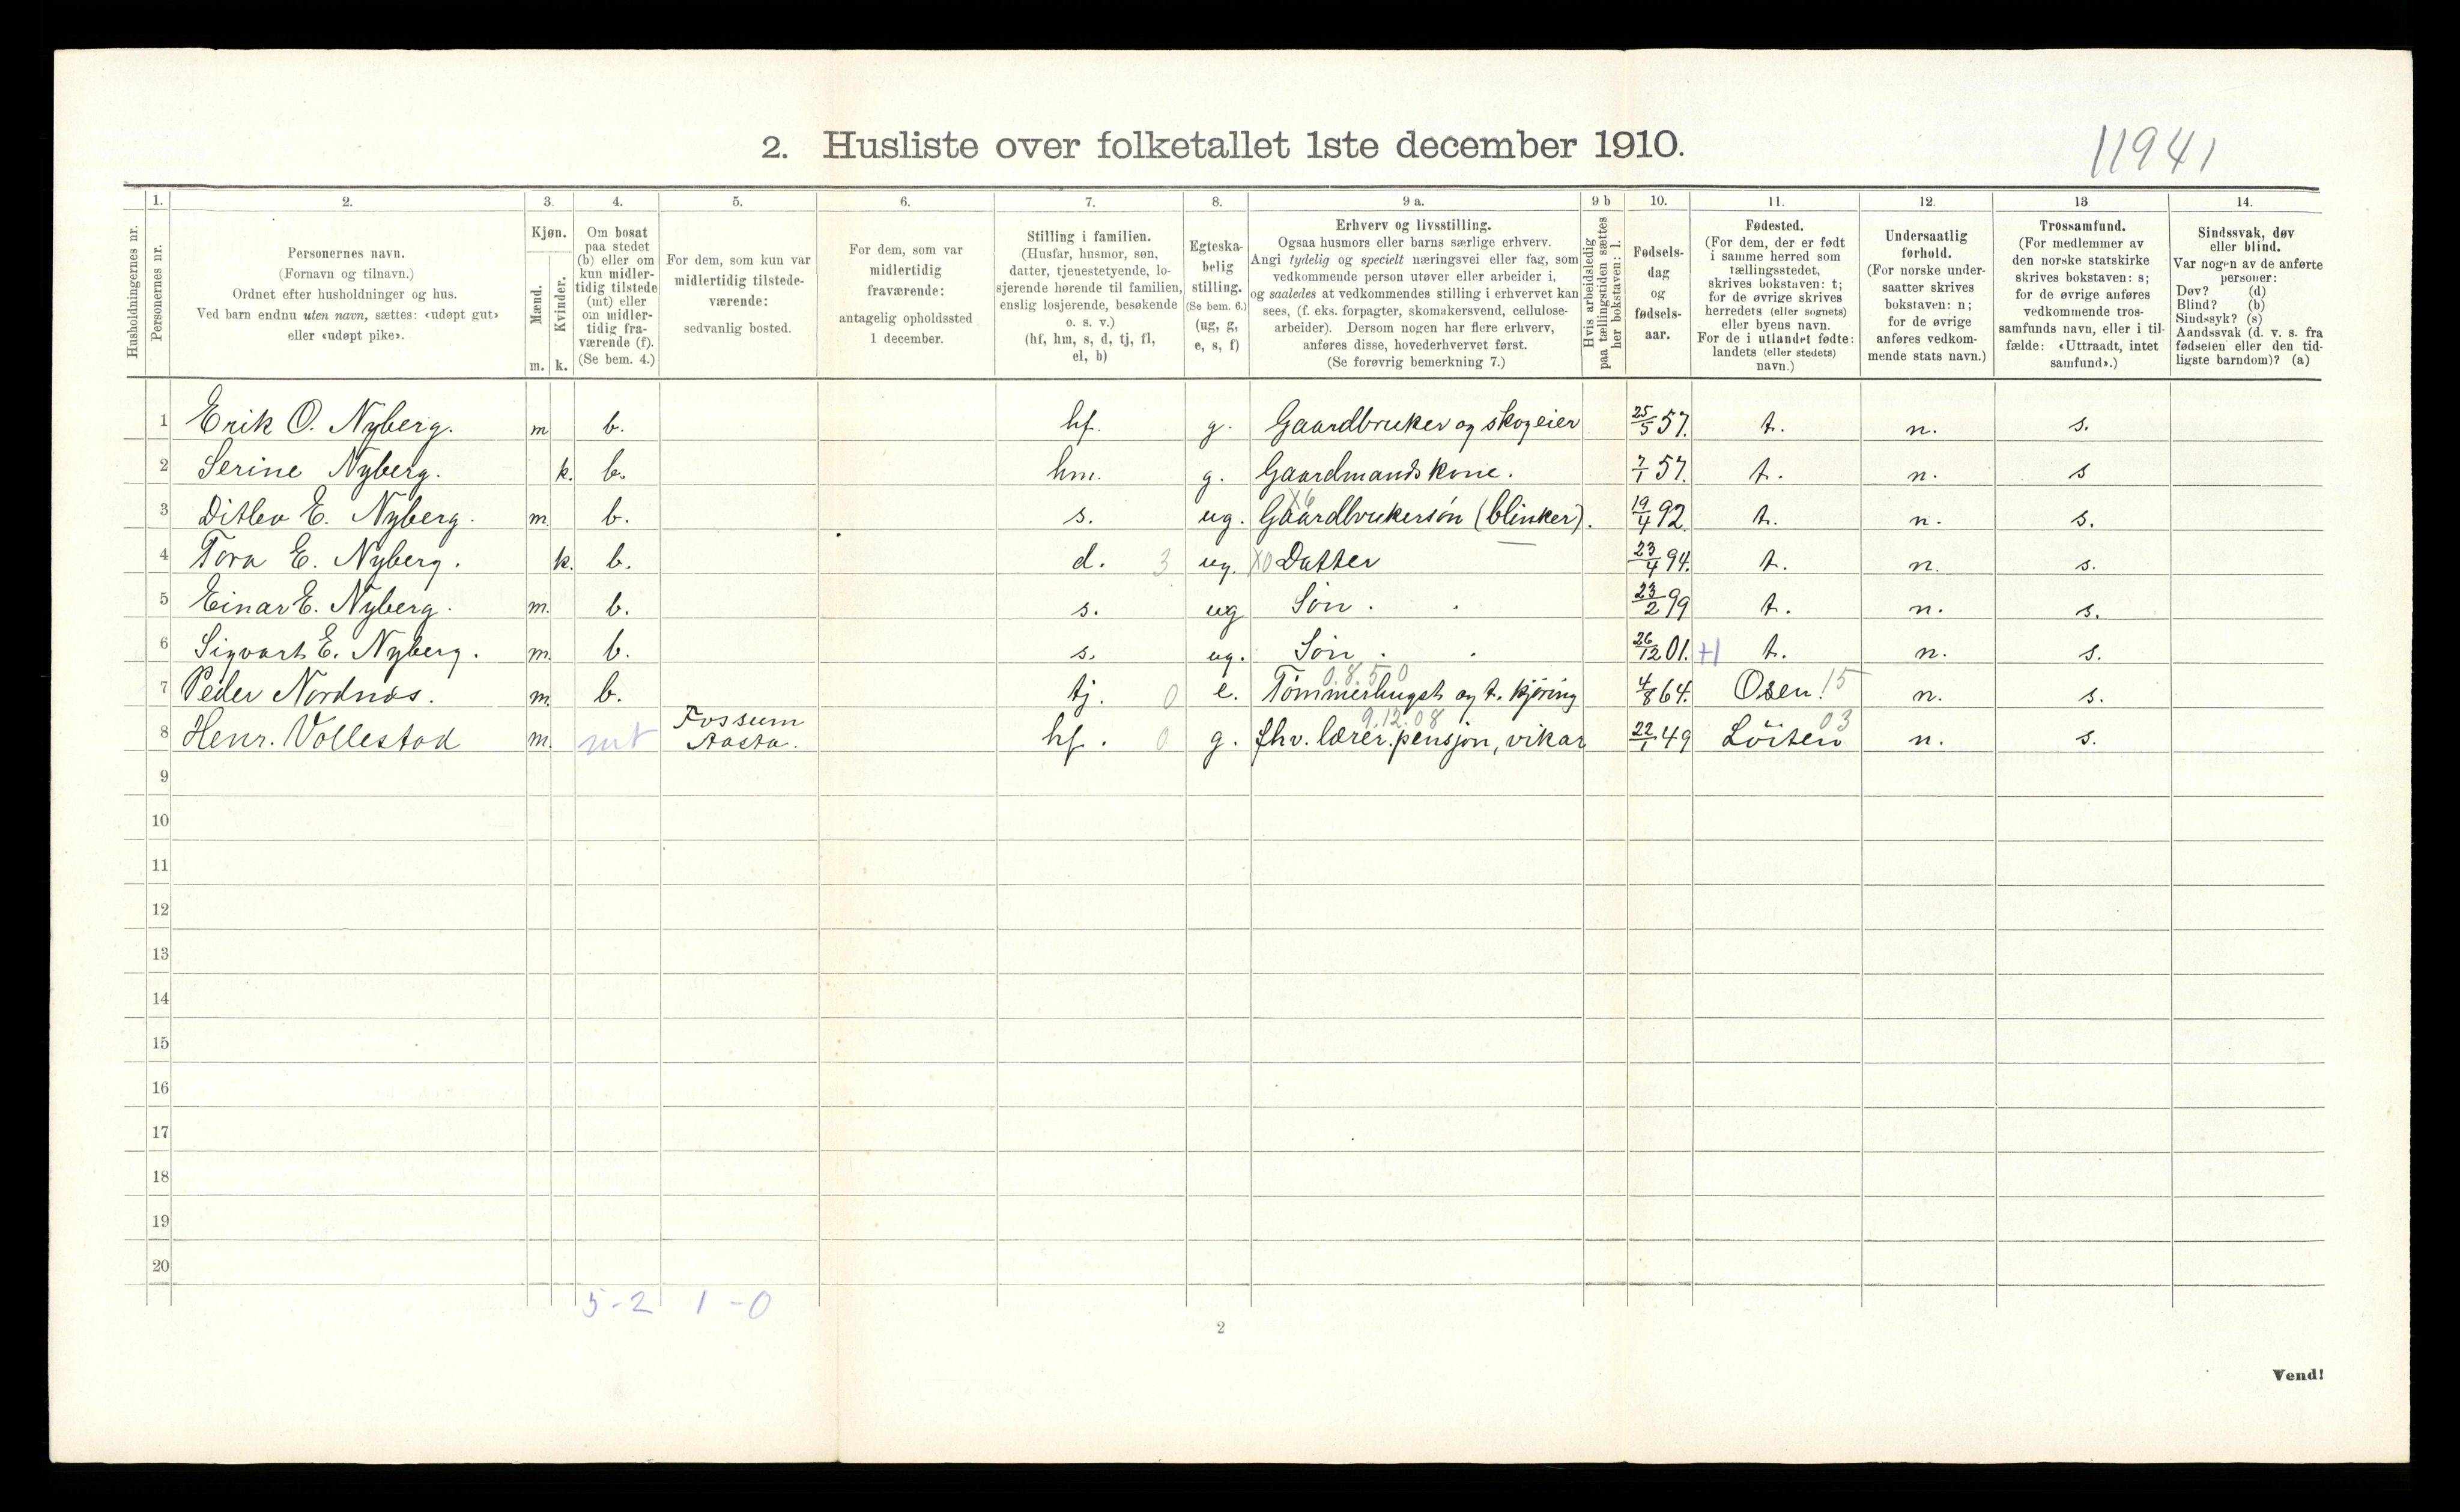 2. Husliste over folketallet 1ste december 1910.
11941
1. 2. 3. 4. 5. 6. 7. 8. 9 a. 9 b 10. 11. 12. 13 14.
Husholdningernes nr.
Personernes nr.
Personernes navn.
(Fornavn og tilnavn.)
Ordnet efter husholdninger og hus.
Ved barn endnu uten navn, sættes: «udøpt gut»
eller «udøpt pike».
Kjøn.
Mænd.
Kvinder.
m. k.
Om bosat
paa stedet
(b) eller om
kun midler-
tidig tilstede
(mt) eller
om midler-
tidig fra-
værende (f).
(Se bem. 4.)
For dem, som kun var
midlertidig tilstede-
værende:
sedvanlig bosted.
For dem, som var
midlertidig
fraværende:
antagelig opholdssted
1 december.
Stilling i familien.
(Husfar, husmor, søn,
datter, tjenestetyende, lo-
sjerende hørende til familien,
enslig losjerende, besøkende
o. s. v.)
(hf, hm, s, d, tj, fl,
el, b)
Egteska-
belig
stilling.
(Se bem. 6.)
(ug, g,
e, s, f)
Erhverv og livsstilling.
Ogsaa husmors eller barns særlige erhverv.
Angi tydelig og specielt næringsvei eller fag, som
vedkommende person utøver eller arbeider i,
og saaledes at vedkommendes stilling i erhvervet kan
sees, (f. eks. forpagter, skomakersvend, cellulose-
arbeider). Dersom nogen har flere erhverv,
anføres disse, hovederhvervet først.
(Se forøvrig bemerkning 7.)
Hvis arbeidsledig
paa tællingstiden sættes
her bokstaven: l.
Fødsels-
dag
og
fødsels-
aar.
Fødested.
(For dem, der er født
i samme herred som
tællingsstedet,
skrives bokstaven: t;
for de øvrige skrives
herredets (eller sognets)
eller byens navn.
For de i utlandet fødte:
landets (eller stedets)
navn.)
Undersaatlig
forhold.
(For norske under-
saatter skrives
bokstaven: n;
for de øvrige
anføres vedkom-
mende stats navn.)
Trossamfund.
(For medlemmer av
den norske statskirke
skrives bokstaven: s;
for de øvrige anføres
vedkommende tros-
samfunds navn, eller i til-
fælde: «Uttraadt, intet
samfund».)
Sindssvak, døv
eller blind.
Var nogen av de anførte
personer:
Døv? (d)
Blind? (b)
Sindssyk? (s)
Aandssvak (d. v. s. fra
fødselen eller den tid-
ligste barndom)? (a)
1 Erik O. Nyberg. m b. hf. g. Gaardbruker og skogeier 25/5 57. t. n. s.
2 Serine Nyberg. k. b. hm. g. Gaardmandskone. 7/1 57. t. n. s
X6
3 Ditlev E. Nyberg. m. b. s. ug. Gaardbrukersøn (blinker). 19/4 92. t. n. s.
4 Tora E. Nyberg. k. b. d. 3 ug. X0 Datter 23/4 94. t. n. s.
5 Einar E. Nyberg. m. b. s. ug Søn. 23/2 99 t. n. s.
6 Sigvart E. Nyberg. m. b. s. ug. Søn. 26/12 01. +1 t. n. s.
0.8.5 0
7 Peder Nordnæs. m. b. tj. 0 e. Tømmerhugst og t. kjøring 4/8 64. Osen. 15 n. s.
Fossum 9.12.08 03
8 Henr. Vollestad m. mt Aasta. hf. 0 g. fhv. lærer. pensjon, vikar 22/1 49 Löiten n. s.
9
10
11
12
13
14
15
16
17
18
19
20
5-2 1-0
2
Vend!